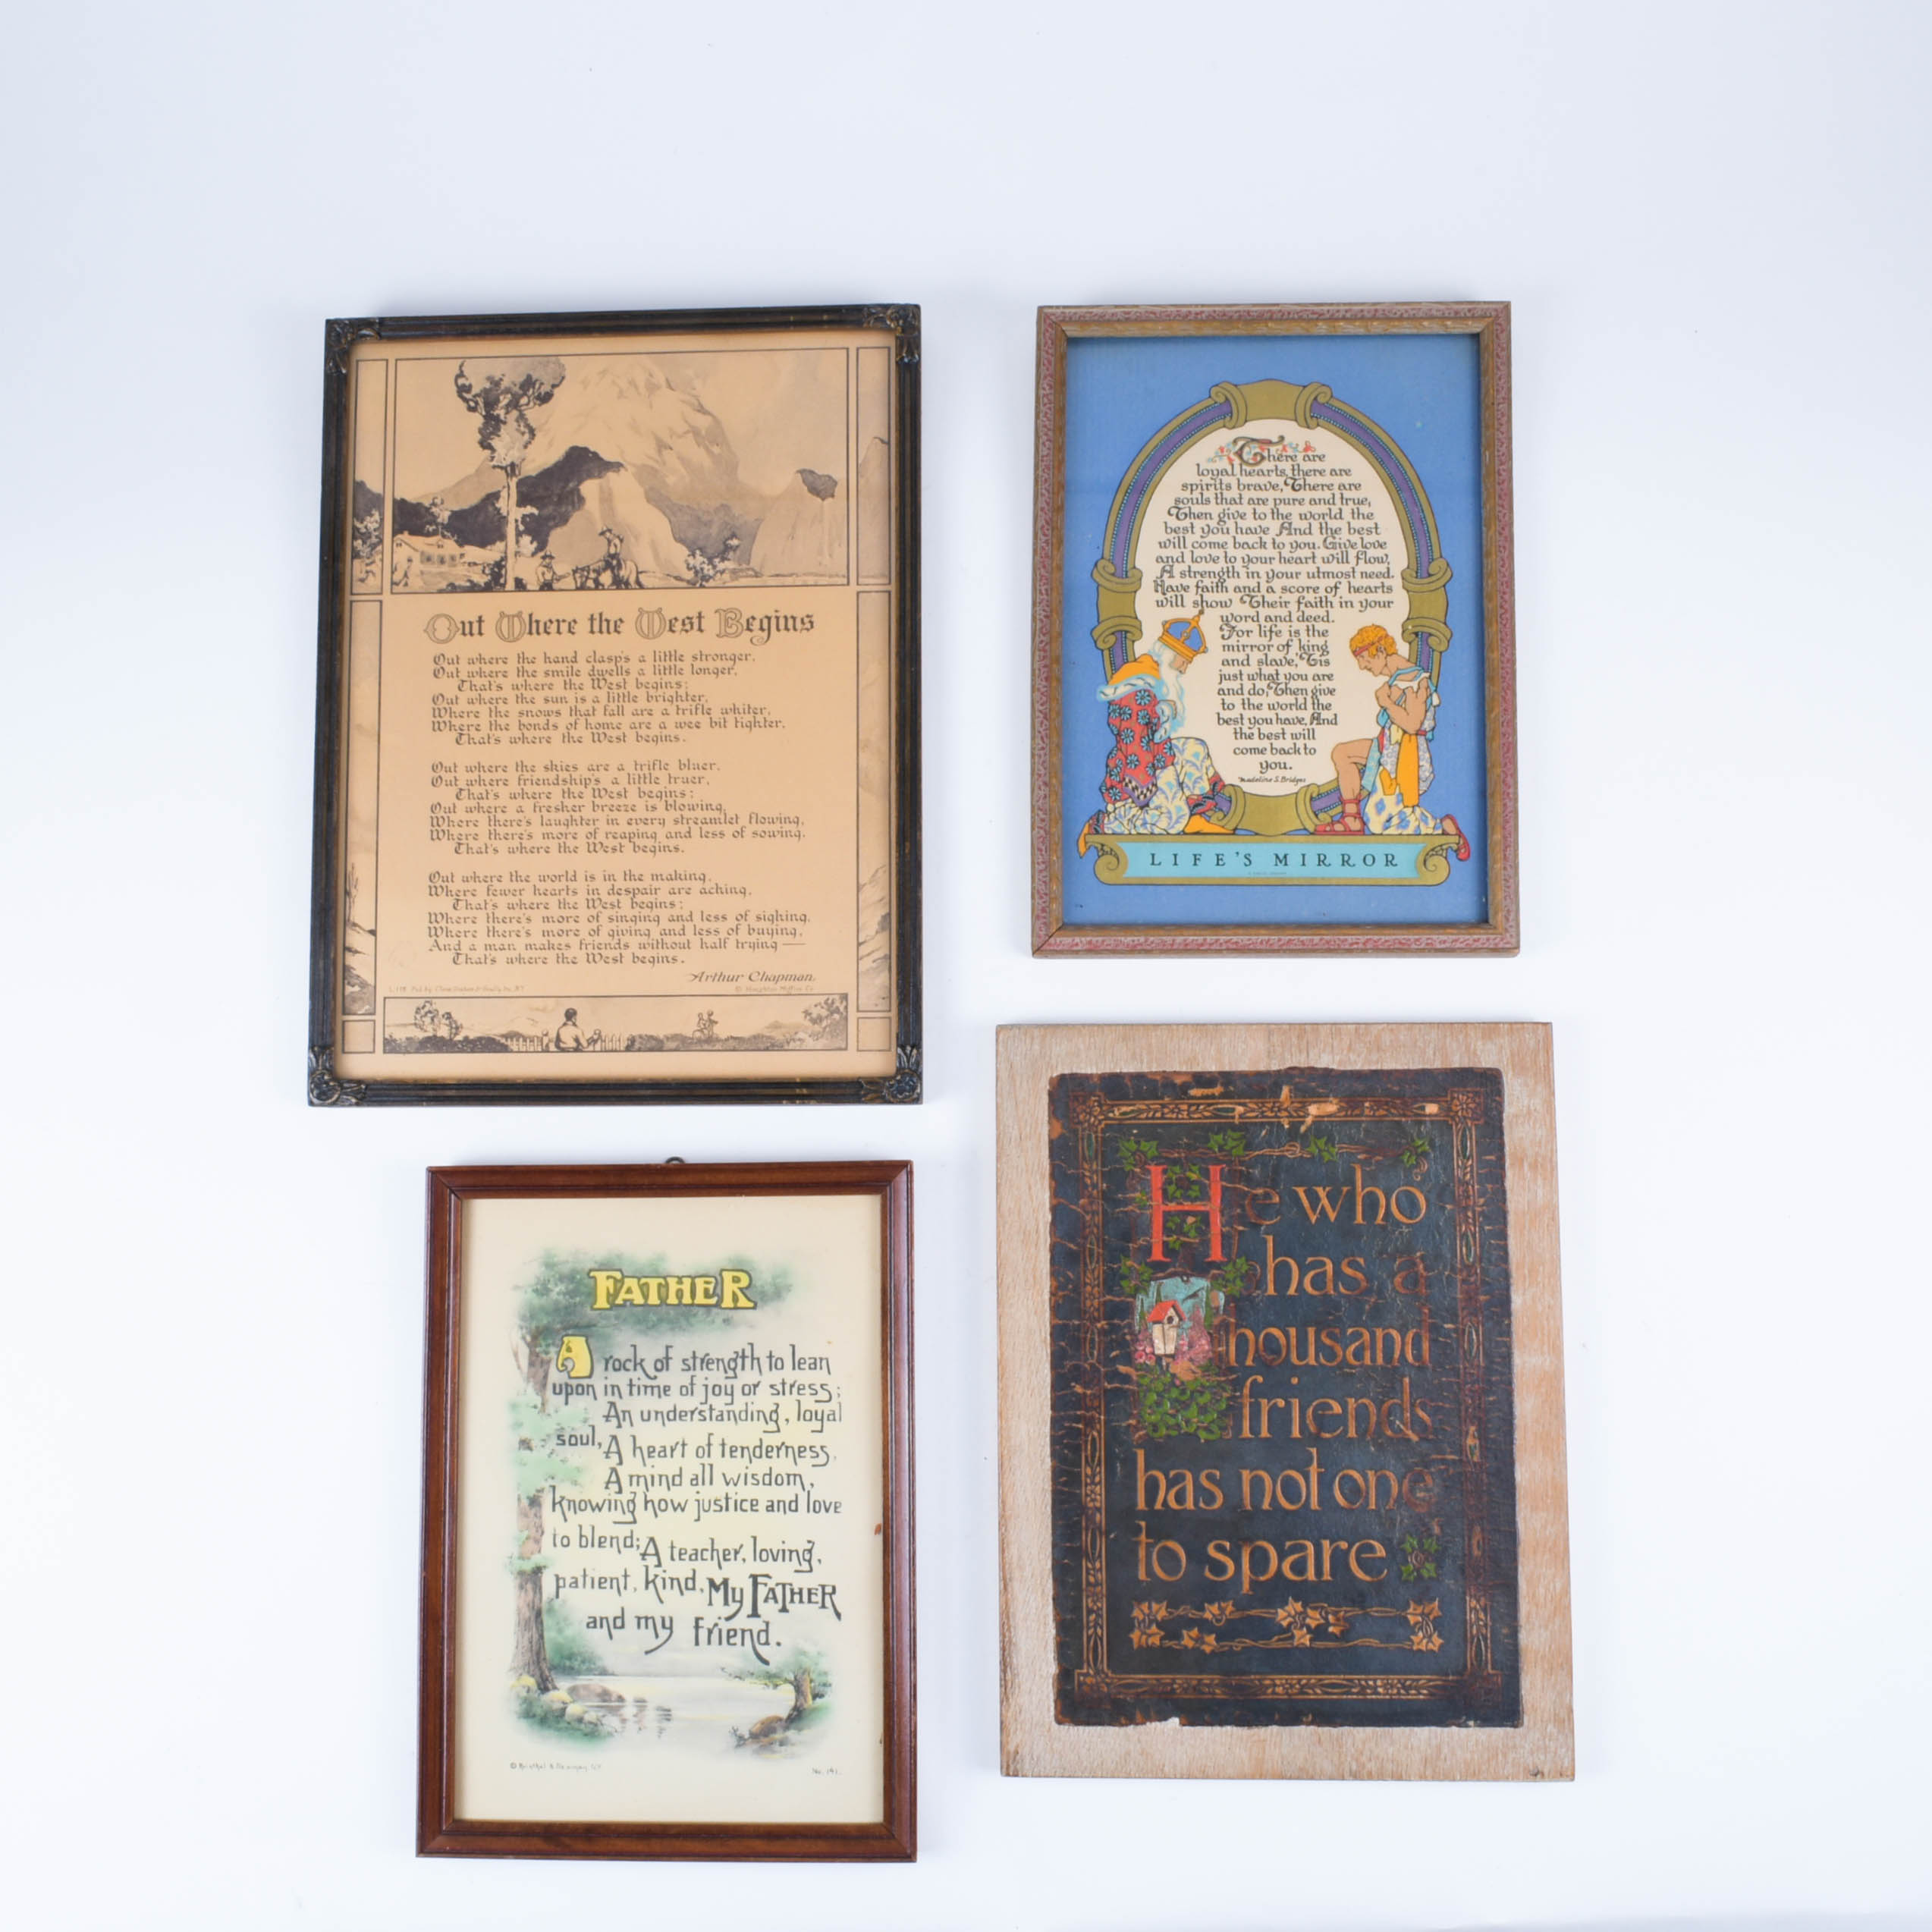 Out Where the West Begins
Out where the hand clasp's a little stronger,
Out where the smile dwells a little longer,
That's where the West begins;
Out where the sun is a little brighter,
Where the snows that fall are a trifle whiter,
Where the bonds of home are a wee bit tighter,
That's where the West begins.
Out where the skies are a trifle bluer,
Out where friendship's a little truer,
That's where the West begins;
Out where a fresher breeze is blowing,
Where there's laughter in every streamlet flowing,
Where there's more of reaping and less of sowing,
That's where the West begins.
Out where the world is in the making,
Where fewer hearts in despair are aching,
That's where the West begins;
Where there's more of singing and less of sighing,
Where there's more of giving and less of buying,
And a man makes friends without half trying —
That's where the West begins.
Arthur Chapman.
© Houghton Mifflin Co
There are
loyal hearts, there are
spirits brave, There are
souls that are pure and true,
Then give to the world the
best you have And the best
will come back to you. Give love
and love to your heart will flow,
A strength in your utmost need.
Have faith and a score of hearts
will show Their faith in your
word and deed.
For life is the
mirror of king
and slave, 'Tis
just what you are
and do, Then give
to the world the
best you have, And
the best will
come back to
you.
Madeline S. Bridges
LIFE'S MIRROR
FATHER
A rock of strength to lean
upon in time of joy or stress;
An understanding, loyal
soul, A heart of tenderness,
A mind all wisdom,
knowing how justice and love
to blend; A teacher, loving,
patient, kind, My FATHER
and my friend.
No. 141.
He who
has a
thousand
friends
has not one
to spare